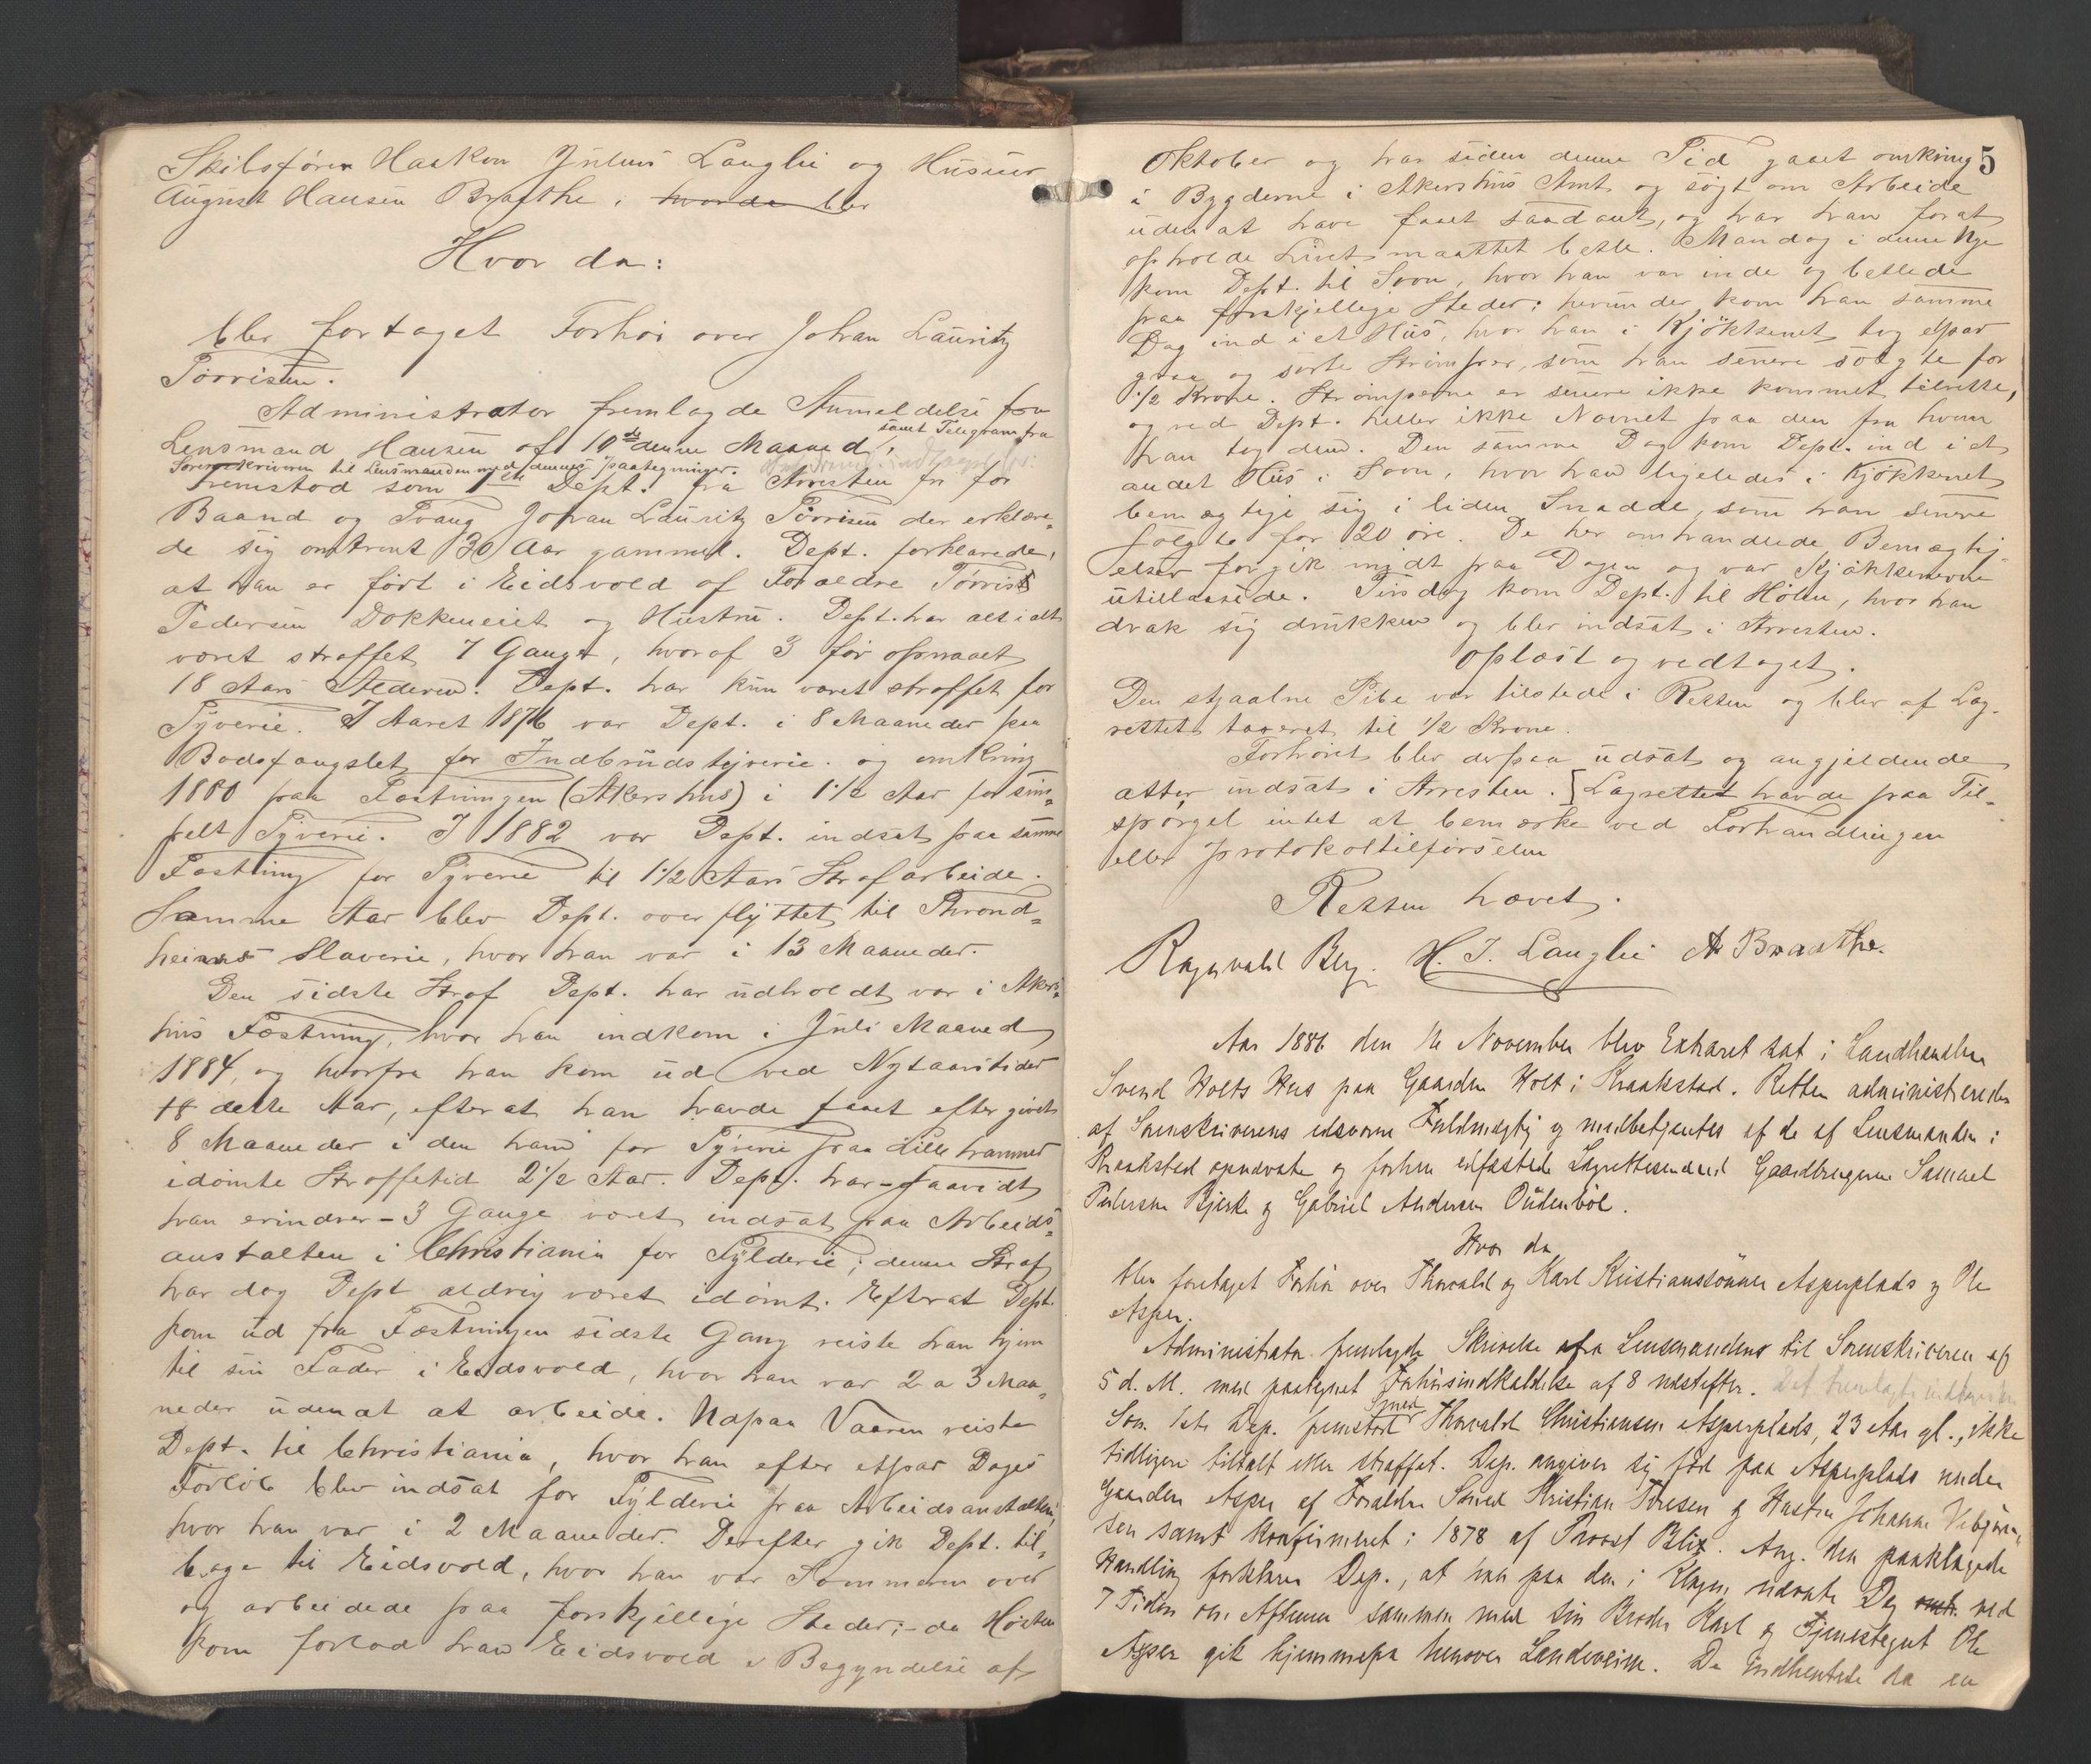 Skibsfører Haakon Julius Langlie og Husuer
August Hansen Braathe, hvorda blev
Hvor da:
blev fortaget Forhør over Johan Lauritz
Tørrisen.
Administrator fremlagde Anmeldelse fra
Lensmand Hansen af 10de denne Maaned,
samt Telegram fra
Sorenskriveren til Lensmanden med dennes paategninger.
Fremstod som 1ste Dept. fra Arresten fri for
Baand og Tvang Johan Lauritz Tørrisen der erklære-
de sig omtrent 30 Aar gammel. Dept. forklarede,
at han er født i Eidsvold af Forældre Tørris
Pedersen Dokkeneiet og Hustru. Dept. har alt ialt
været straffet 7 Gange, hvoraf 3 før opnaaet
18 Aars Alderen. Dept. har kun været straffet for
Tyverie. I Aaret 1876 var Dept. i 8 Maaneder paa
Bodsfængslet for Indbrudstyverie. og omkring
1880 paa Fæstningen (Akershus) i 1 1/2 Aar for sim-
pelt Tyverie. I 1882 var Dept. indsat paa samme
Fæstning for Tyverie til 1 1/2 Aars Strafarbeide.
Samme Aar blev Dept. overflyttet til Thrond-
heims Slaverie, hvor han var i 13 Maaneder.
Den sidste Straf Dept. har udholdt var i Akers-
hus Fæstning, hvor han indkom i Juli Maaned
1884, og hvorfra han kom ud ved Nytaarstider
dette Aar, efterat han havde faaet eftergivet
8 Maaneder i den ham for Tyverie paa Lillehammer
idømte Straffetid 2 1/2 Aar. Dept. har - saavidt
han erindrer - 3 Gange været indsat paa Arbeids-
anstalten i Christiania for Fylderie; denne Straf
har dog Dept aldrig været idømt. Efterat Dept.
kom ud fra Fæstningen sidste Gang reiste han hjem
til sin Fader i Eidsvold, hvor han var 2 a 3 Maa-
neder udenat at arbeide. Udpaa Vaaren reiste
Dept. til Christiania, hvor han efter etpar Dages
Forløb blev indsat for Fylderie paa Arbeidsanstalten,
hvor han var i 2 Maaneder. Derefter gik Dept. til-
bage til Eidsvold, hvor han var Sommeren over
og arbeidede paa forskjellige Steder; - da Høsten
kom forlod han Eidsvold i Begyndelse af
5
Oktober og har siden denne Tid gaaet omkring
i Bygderne i Akershus Amt og søgt om Arbeide
uden at have faaet saadant, og har han forat
opholde Livet maattet betle. Mandag i denne Uge
kom Dept. til Soon, hvor han var inde og betlede
paa forskjellige Steder; herunder kom han samme
Dag ind i et Hus, hvor han i Kjøkkenet tog etpar
graa og sorte Strømper, som han senere solgte for
1/2 Krone. Strømperne er senere ikke kommet tilrette,
og ved Dept. heller ikke Navnet paa den fra hvem
han tog dem. Den samme Dag kom Dept. ind i et
andet Hus i Soon, hvor han ligeledes i Kjøkkenet
bemægtige sig i liden Snadde, som han senere
solgte for 20 øre. De her omhandlede Bemægtig-
elser forgik midt paa Dagen og var Kjøkkenerne
utillaasede. Tirsdag kom Dept. til Hølen, hvor han
drak sig drukken og blev indsat i Arresten.
Oplæst og vedtaget.
Den stjaalne Pibe var tilstede i Retten og blev af Lag-
rettet taxeret til 1/2 Krone.
Forhøret blev derpaa udsat og angjeldende
atter indsat i Arresten. [Lagrettet havde paa Til-
spørgel intet at bemærke ved Forhandlingen
eller protokoltilførselen
Retten hævet.
Ragnvald Berg. H. J. Langlie A Braathe.
Aar 1886 den 16 November blev Extraret sat i Landhandler
Svend Holts Hus paa Gaarden Holt i Kraakstad. Retten administreredes
af Sorenskriverens edsvorne Fuldmægtig og medbetjentes af de af Lensmanden i
Kraakstad opnævnte og forhen edfæstede Lagrettesmænd Gaardbrugerne Samuel
Pedersen Bjerke og Gabriel Andersen Oudenbøl.
Hvor da
blev foretaget Forhør over Thorvald og Karl Kristianssønner Asperplads og Ole
Asper.
Administrator fremlagde Skrivelse fra Lensmanden til Sorenskriveren af
5 d. M. med paategnet Forhørsindkaldelse af 8 næstefter.
Som 1ste Dep. fremstod Smed Thorvald Christiansen Asperplads, 23 Aar gl., ikke
tidligere tiltalt eller straffet. Dep. angiver sig født paa Asperplads under
Gaarden Asper af Forældre Smed Kristian Toresen og Hustru Johanne
sen samt konfirmeret i 1878 af Provst Blix. Ang. den paaklagede
Handling forklarer Dep., at han paa den i Klagen nævnte Dag omtr. ved
7 Tiden om Aftenen sammen med sin Broder Karl og Tjenestegut Ole
Asper gik hjemmefra henover Landeveien. De indhentede da en